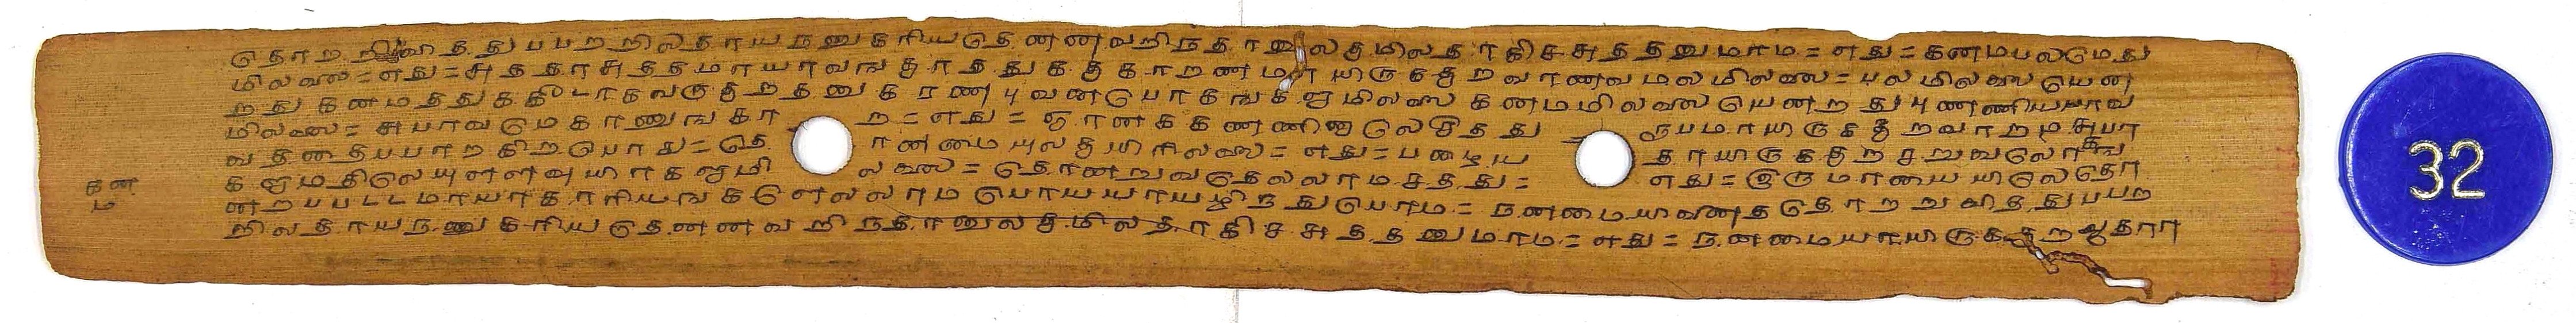 தொறறுவித துபபறறிலதாயநனுகரியதெனனவறிநதானுலகமிலதாகிசசுததனுமாம = எது = கனமபலமெது
மிலலை = எது = சுததாசுததமாயாவஙகாததுககுகாறணமாயிருககுறவாணவமலமிலலை = பலமிலலையென
றது கனமததுககீடாகவருகுறதனுகரணபுவனபொகஙகளுமிலலை கனமமிலலையெனறதுபுணணியபாவ
மிலலை = சுபாவமெகாணுஙகா ற = எது = ஞானககணணினுலெசித து = ரூபமாயிருககுறவாறமசுபா
வததைபபாறகிறபொது = தெ ானமையுலகுயிரிலலை = எது = பழைய தாயிருககுறசறுவலொகங
களுமதிலெயுளளவுயிரகளுமி லலை = தொனறுவதெலலாமசதது = எது = இருமாயையிலெதொ
னறபபடடமாயாகாரியஙகளெலலாம பொயயாயழிநதுபொம = நனமையாவணததொறறுவிததுபபற
றிலதாயநனுகரியதெனனவறிநதானுலகமிலதாகிசசுததனுமாம = எது = நனமையாயிருககுறஆதார
கன
ம
32